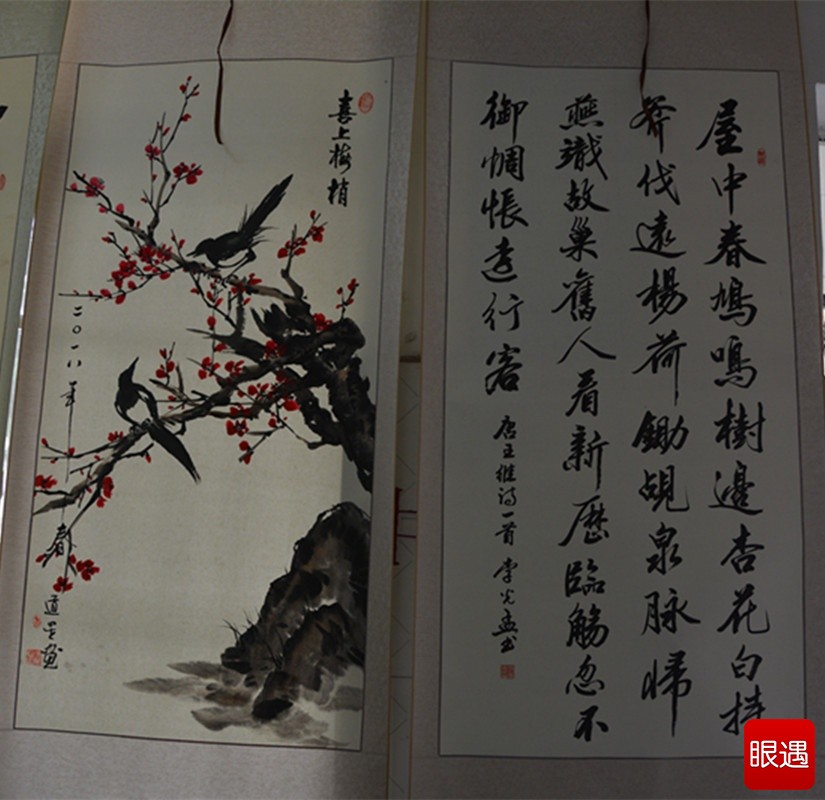 喜上梅梢
二〇一八年春
屋中春鳩鳴樹邊杏花白持
斧伐遠楊荷鋤覘泉脉帰
燕識故巢舊人看新歷臨觴忽不
御惆悵遠行客
唐王維诗一首
眼遇